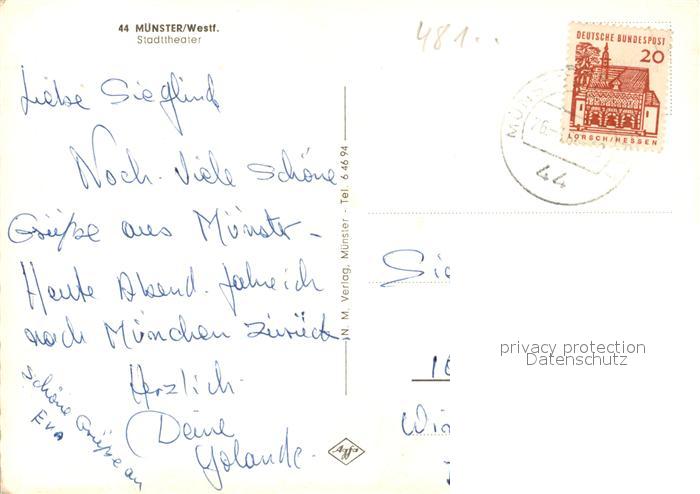 44 MÜNSTER/Westf.
Stadttheater
481..
Liebe Sieglind
Noch. Viele Schöne
Grüße aus Münstr –
Heute Abend. fahre ich
nach München zurück –
Herzlich.
Deine
Yolande.
Schöne Grüße an
EVA
N. M. Verlag, Münster - Tel. 6 46 94
Agfa
DEUTSCHE BUNDESPOST
20
LORSCH/HESSEN
44
Sie
privacy protection
Datenschutz